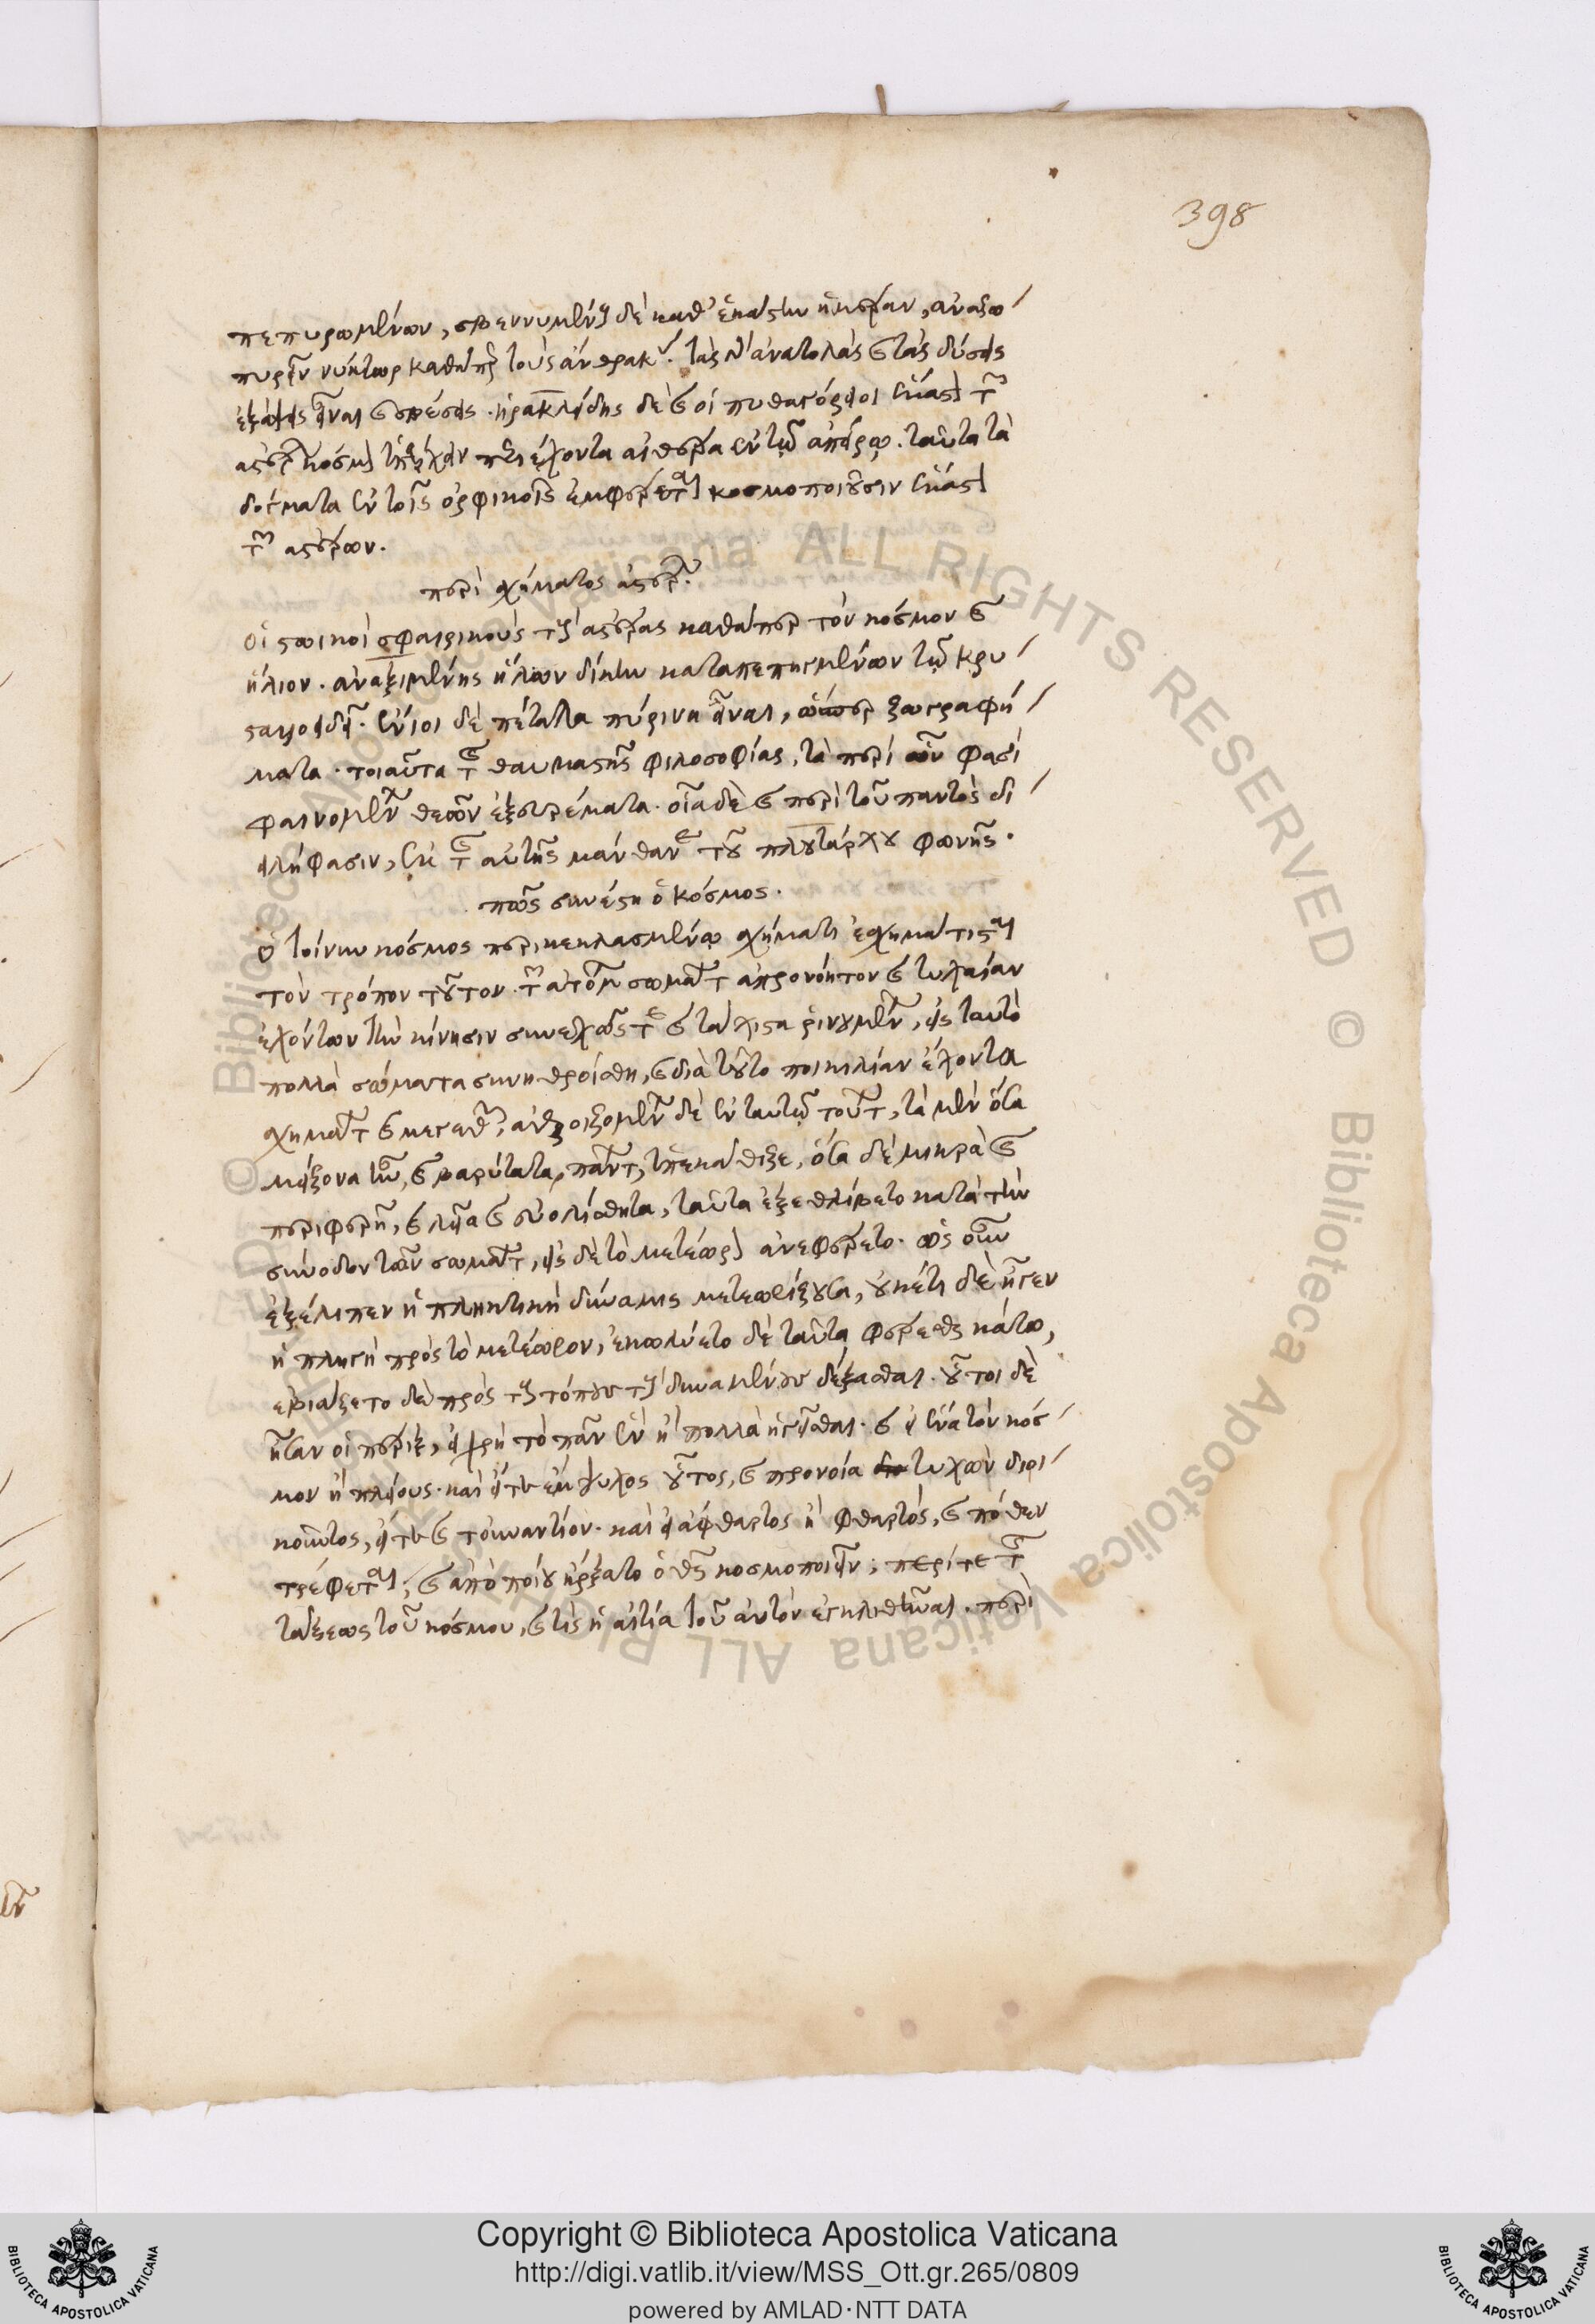 398
πεπυρωμένων, σβεννυμένους δὲ καθ' ἑκάστην ἡμέραν, ἀναζω
πυρεῖν νύκτωρ καθάπερ τοὺς ἄνθρακας. τὰς δ' ἀνατολὰς καὶ τὰς δύσεις
ἐξάψεις εἶναι καὶ σβέσεις. ἡρακλείδης δὲ καὶ οἱ πυθαγόρειοι ἕκαστον τῶν
ἀστέρων κόσμον ὑπάρχειν περιέχοντα αἰθέρα ἐν τῷ ἀπείρῳ. ταῦτα τὰ
δόγματα ἐν τοῖς ὀρφικοῖς ἐμφέρεται κοσμοποιοῦσιν ἕκαστον
τῶν ἀστέρων.
περὶ σχήματος ἀστέρων.
οἱ στωικοὶ σφαιρικοὺς τοὺς ἀστέρας καθάπερ τὸν κόσμον καὶ
ἥλιον. ἀναξιμένης ἥλων δίκην καταπεπηγμένων τῷ κρυ
σταλλοειδεῖ. ἔνιοι δὲ πέταλα πύρινα εἶναι, ὥσπερ ζωγραφή
ματα. τοιαῦτα τῆς θαυμαστῆς φιλοσοφίας, τὰ περὶ ὧν φασὶ
φαινομένων θεῶν εὑρέματα. οἷα δὲ καὶ περὶ τοῦ παντὸς δι
ειλήφασιν, ἐκ τῆς αὐτῆς μάνθανε τοῦ πλουτάρχου φωνῆς.
πῶς συνέστη ὁ κόσμος.
ὁ τοίνυν κόσμος περικεκλασμένῳ σχήματι ἐσχημάτισται
τὸν τρόπον τοῦτον. τῶν ἀτόμων σωμάτων ἀπρονόητον καὶ τυχαίαν
ἐχόντων τὴν κίνησιν συνεχῶς τε καὶ τάχιστα κινουμένων, εἰς ταυτὸ
πολλὰ σώματα συνηθροίσθη, καὶ διὰ τοῦτο ποικιλίαν ἔχοντα
σχημάτων καὶ μεγεθῶν, ἀθροιζομένων δὲ ἐν ταυτῷ τούτων, τὰ μὲν ὅσα
μείζονα ἦν, καὶ βαρύτατα, πάντως ὑπεκάθιζε, ὅσα δὲ μικρὰ καὶ
περιφερῆ, καὶ λεῖα καὶ εὐολίσθητα, ταῦτα ἐξεθλίβετο κατὰ τὴν
σύνοδον τῶν σωμάτων, εἰς δὲ τὸ μετέωρον ἀνεφέρετο. ὡς οὖν
ἐξέλιπεν ἡ πληκτικὴ δύναμις μετεωρίζουσα, οὐκέτι δὲ ἦγεν
ἡ πληγὴ πρὸς τὸ μετέωρον, ἐκωλύετο δὲ ταῦτα φέρεσθαι κάτω,
ἐβιάζετο δὲ πρὸς τοὺς τόπους τοὺς δυναμένους δέξασθαι. οὗτοι δὲ
ἦσαν οἱ πέριξ, εἰ χρὴ τὸ πᾶν ἓν ἢ πολλὰ ἡγεῖσθαι. καὶ εἰ ἕνα τὸν κόσ
μον ἢ πλείους. καὶ εἴτε ἔμψυχος οὗτος, καὶ προνοία τυχὼν διοι
κοῦντος, εἴτε καὶ τοὐναντίον. καὶ εἰ ἄφθαρτος ἢ φθαρτός, καὶ πόθεν
τρέφεται, καὶ ἀπὸ ποίου ἤρξατο ὁ θεὸς κοσμοποιεῖν; περί τε τῆς
τάξεως τοῦ κόσμου, καὶ τίς ἡ αἰτία τοῦ αὐτὸν ἐγκλιθῆναι. περὶ
© Biblioteca Apostolica Vaticana ALL RIGHTS RESERVED © Biblioteca Apostolica Vaticana ALL RIGHTS RESERVED
Copyright © Biblioteca Apostolica Vaticana
http://digi.vatlib.it/view/MSS_Ott.gr.265/0809
powered by AMLAD·NTT DATA
BIBLIOTECA APOSTOLICA VATICANA
BIBLIOTECA APOSTOLICA VATICANA